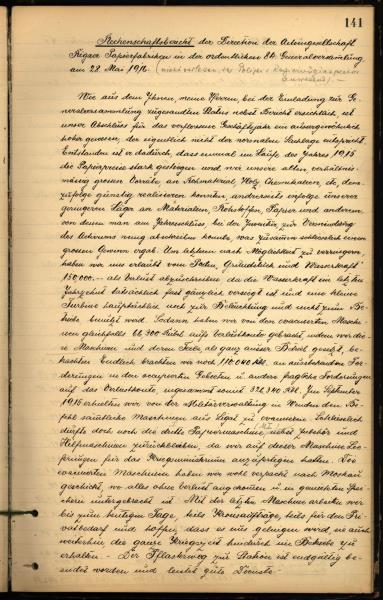 141
Rechenschaftsbericht der Direction der Actiengesellschaft
Rigaer Papierfabriken in der ordentlichen 84. Generalversammlung
am 28. Mai 1916.
Wie aus dem Ihnen, meine Herren, bei der Einladung zur Ge-
neralversammlung zugesandten Status nebst Bericht ersichtlich, ist
unser Abschluss für das verflossene Geschäftsjahr ein aussergewöhnlich
hoher gewesen, der eigentlich nicht der normalen Sachlage entspricht.
Entstanden ist er dadurch, dass einmal im Laufe des Jahres 1915
die Papierpreise stark gestiegen und wir unsere alten verhältniss-
mässig grossen Vorräte, an Rohmaterial, Holz, Chemikalien, etc, dem-
zufolge günstig realisieren konnten, anderseits infolge unserer
geringeren Lager an Materialien, Rohstoffen, Papier und anderem
von denen man am Jahresschluss, bei der Inventur zur Verminderung
des Activums wenig abschreiben konnte, was zusammen schliesslich einen
grossen Gewinn ergab. Um letzteren nach Möglichkeit zu verringern,
haben wir uns erlaubt vom Posten, Grundstück und Wasserkraft
150000.- als Verlust abzuschreiben, da die Wasserkraft im letzten
Jahrzehnt tatsächlich fast gänzlich versiegt ist und eine kleine
Turbine hauptsächlich noch zur Beleuchtung und nicht zum Be-
triebe benutzt wird. Sodann haben wir von den evacuierten Maschi-
nen gleichfalls 66 300 Rubel aufs Verlustkonto gebracht, indem wir die-
se Maschinen und deren Teile, als ganz ausser Betrieb gesetzt, be-
trachten. Endlich brachten wir noch 110 040 Rbl. an ausstehenden For-
derungen in den occupierten Gebieten u. andere fragliche Forderungen
auf das Verlustkonto, insgesamt somit 326 340 Rbl. Im September
1915 erhielten wir von der Militärverwaltung in Wenden den Be-
fehl sämtliche Maschinen aus Ligat zu evacuieren. Schliesslich
durfte doch noch die dritte Papiermaschine, nebst Zubehör und
Hilfsmaschinen zurückbleiben, da wir auf dieser Maschine Lie-
ferungen für das Kriegsministerium anzufertigen hatten. Die
evacuierten Maschinen haben wir wohl verpackt nach Moskau
geschickt, wo alles ohne Verlust angekommen u. in gemieteten Spei-
chern untergebracht ist. Mit der alten Maschine arbeiten wir
bis zum heutigen Tage, teils Kronsaufträge, teils für den Pri-
vatbedarf und hoffen, dass es uns gelingen wird, sie auch
weiterhin die ganze Kriegszeit hindurch im Betriebe zu
erhalten. - Der Pflasterweg zur Station ist endgültig be-
endet worden und leistet gute Dienste. -